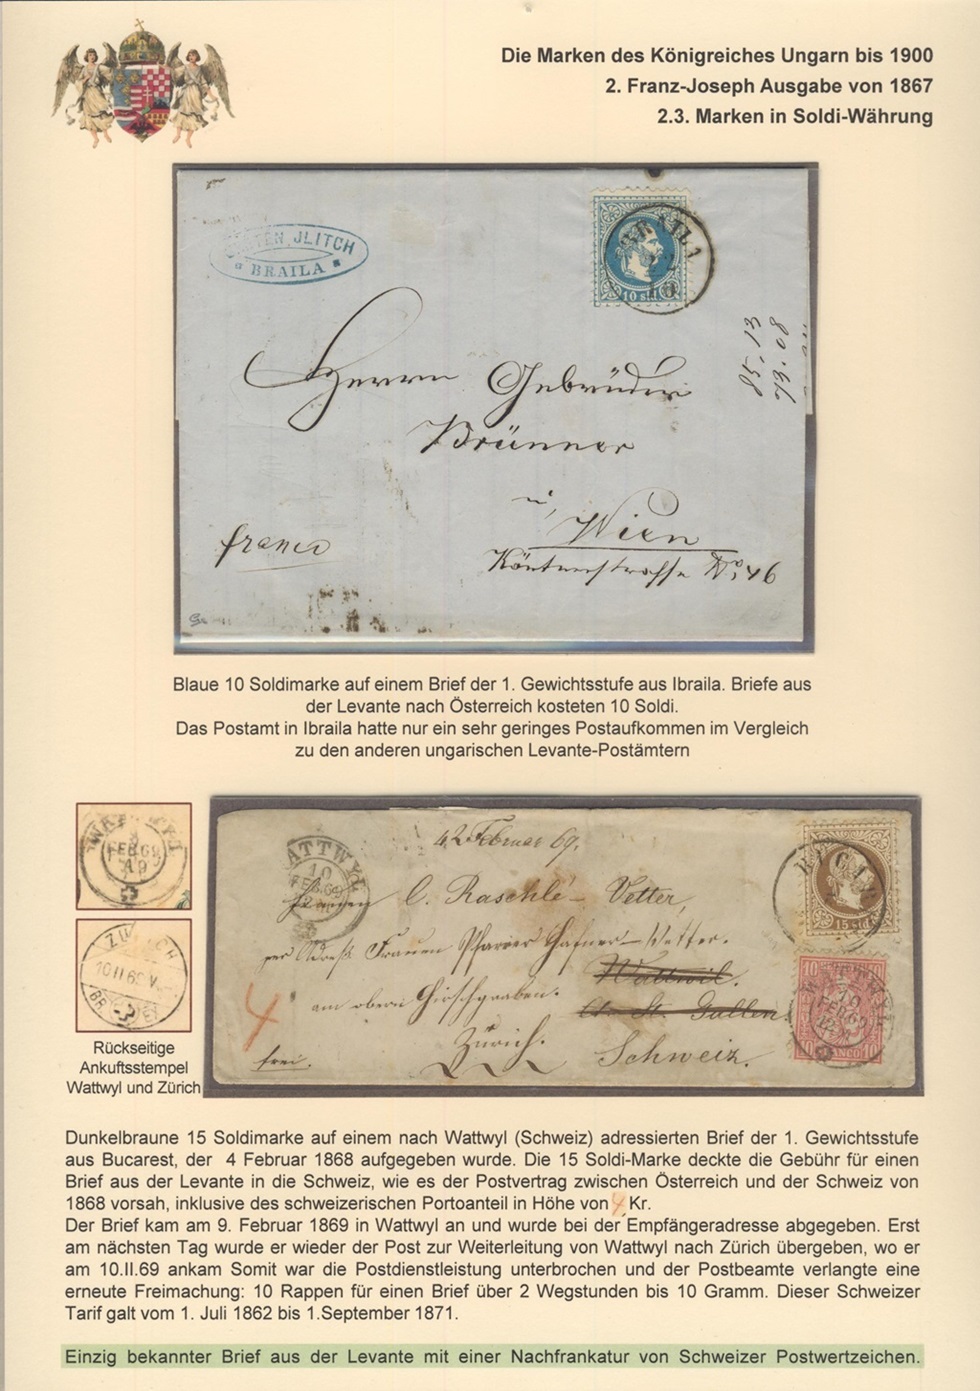 Die Marken des Königreiches Ungarn bis 1900
2. Franz-Joseph Ausgabe von 1867
2.3. Marken in Soldi-Währung
JLITCH
BRAILA
10 sld
85.13
73.08
Herrn Gebrüder
Brünner
Wien
franco
Kärtnerstrasse No 46
Blaue 10 Soldimarke auf einem Brief der 1. Gewichtsstufe aus Ibraila. Briefe aus
der Levante nach Österreich kosteten 10 Soldi.
Das Postamt in Ibraila hatte nur ein sehr geringes Postaufkommen im Vergleich
zu den anderen ungarischen Levante-Postämtern
FEB 69
10 II 69
Rückseitige
Ankuftsstempel
Wattwyl und Zürich
ATTWYL
10
FEB 69
4 2 Februar 69.
C. Raschlé-Vetter,
per Adress Frauen Pfarrer Hafner-Vetter.
Wattwil.
am obern Hirschgraben.
Ct. St. Gallen.
4
Zürich.
Schweiz.
frei.
15 sld
10
10
FEB 69
FRANCO
10
Dunkelbraune 15 Soldimarke auf einem nach Wattwyl (Schweiz) adressierten Brief der 1. Gewichtsstufe
aus Bucarest, der 4 Februar 1868 aufgegeben wurde. Die 15 Soldi-Marke deckte die Gebühr für einen
Brief aus der Levante in die Schweiz, wie es der Postvertrag zwischen Österreich und der Schweiz von
1868 vorsah, inklusive des schweizerischen Portoanteil in Höhe von 4 Kr.
Der Brief kam am 9. Februar 1869 in Wattwyl an und wurde bei der Empfängeradresse abgegeben. Erst
am nächsten Tag wurde er wieder der Post zur Weiterleitung von Wattwyl nach Zürich übergeben, wo er
am 10.II.69 ankam Somit war die Postdienstleistung unterbrochen und der Postbeamte verlangte eine
erneute Freimachung: 10 Rappen für einen Brief über 2 Wegstunden bis 10 Gramm. Dieser Schweizer
Tarif galt vom 1. Juli 1862 bis 1.September 1871.
Einzig bekannter Brief aus der Levante mit einer Nachfrankatur von Schweizer Postwertzeichen.